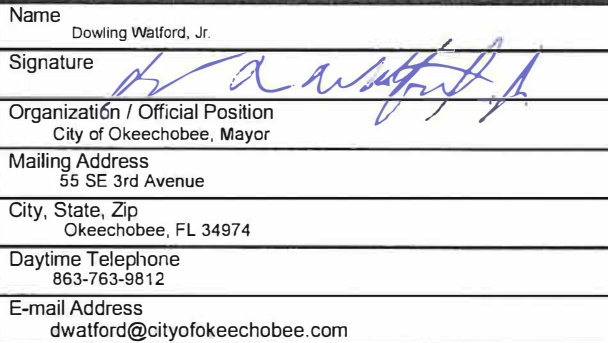 Name
Dowling Watford, Jr.
Signature
Organization / Official Position
City of Okeechobee, Mayor
Mailing Address
55 SE 3rd Avenue
City, State, Zip
Okeechobee, FL 34974
Daytime Telephone
863-763-9812
E-mail Address
dwatford@cityofokeechobee.com